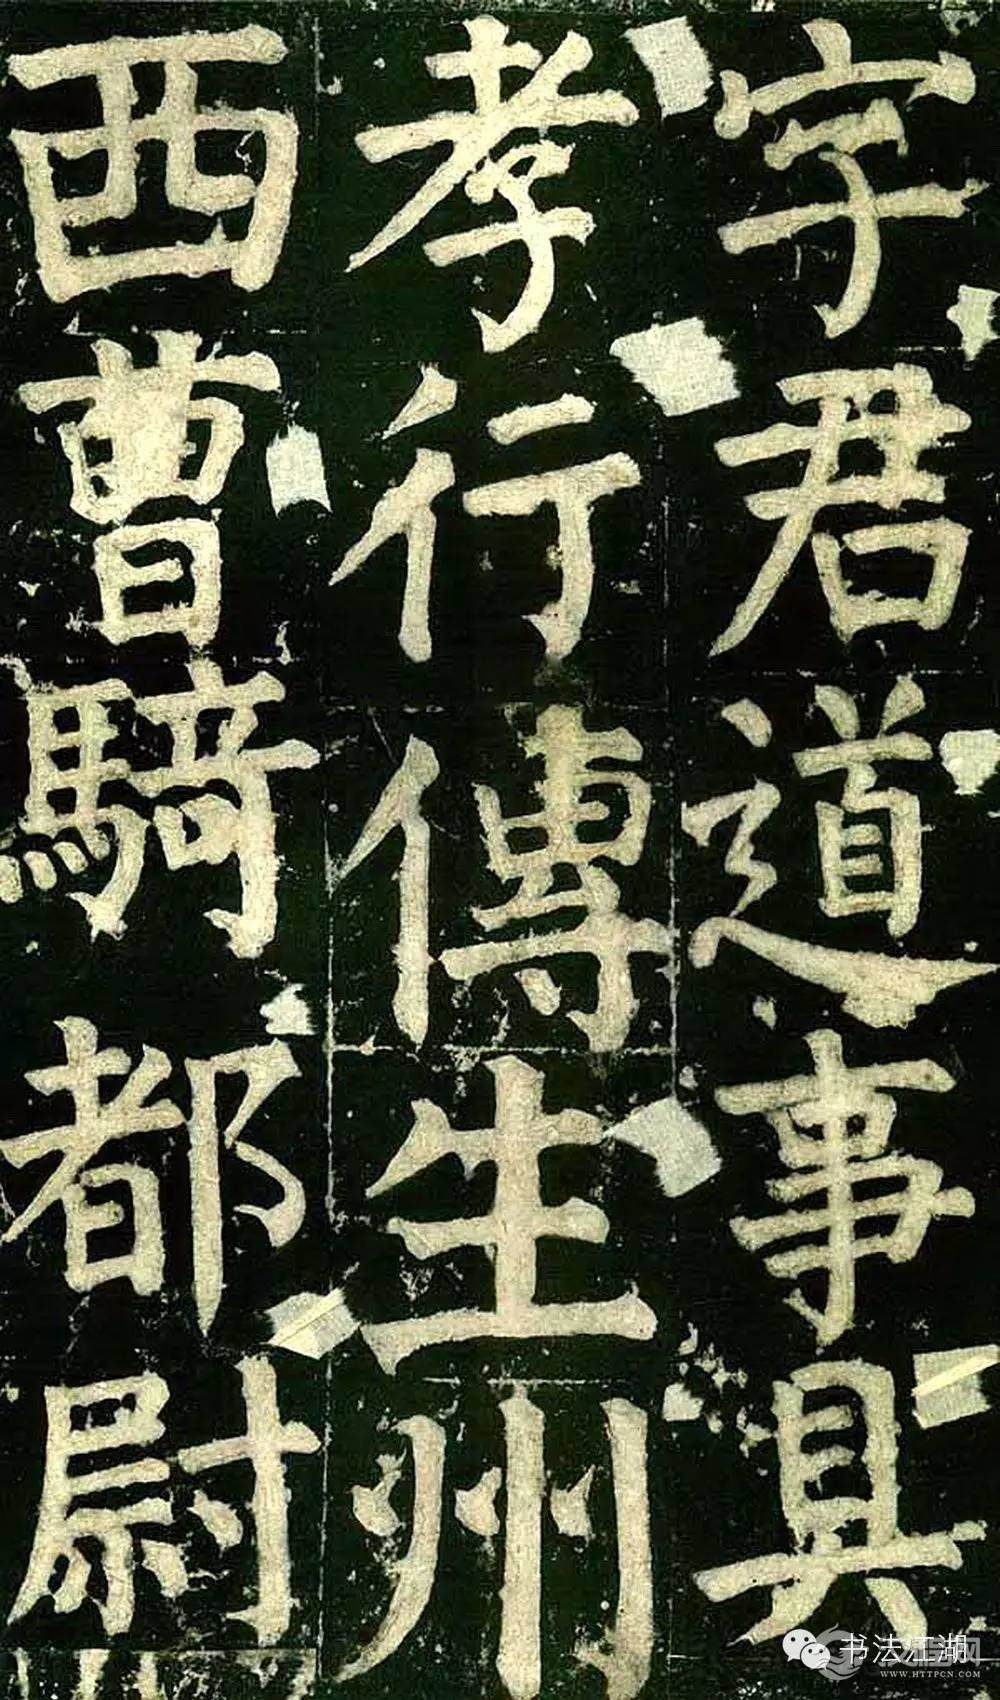 字君道事具
孝行傳生州
西曹騎都尉
书法江湖
WWW.HTTPCN.COM